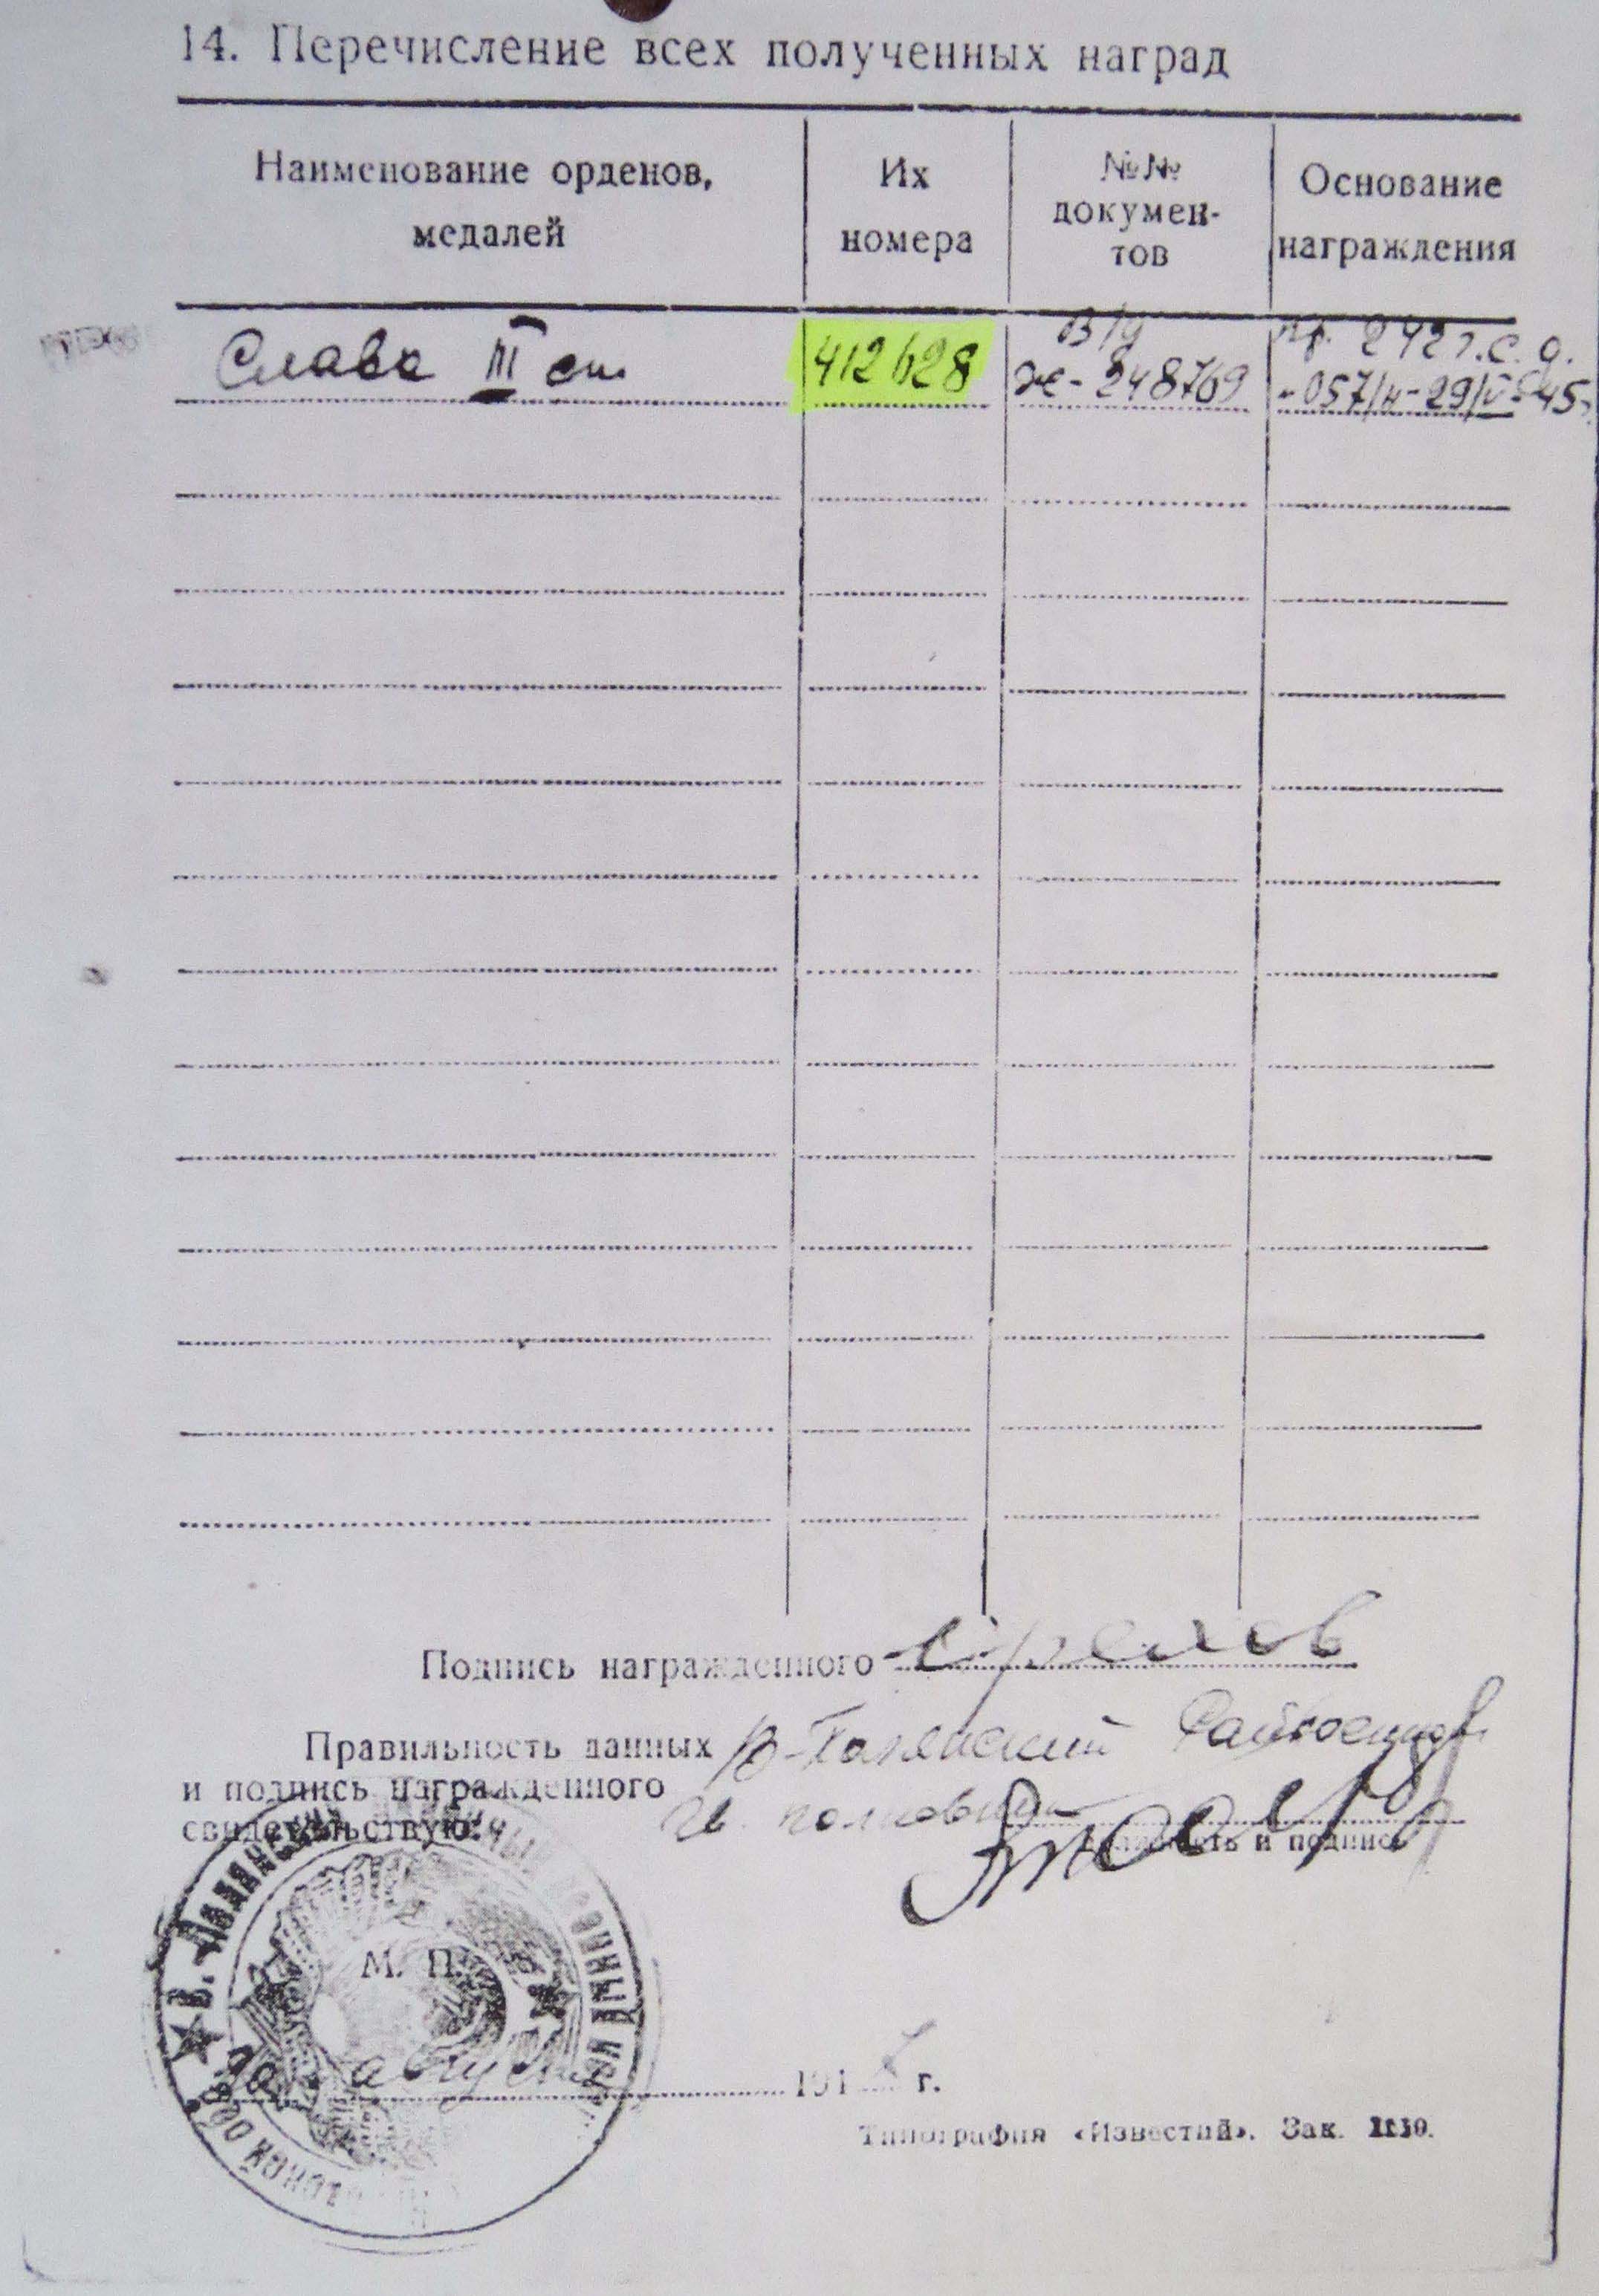 14. Перечисление всех полученных наград
Наименование орденов, медалей
Их номера
№№ докумен-
тов
Основание награждения
Слава III ст. 412628 в/у ж-248769 пр. 242 г.с.д.
-057/н-29/V-45
Подпись награжденного
Правильность данных В-Полянский Райвоенком
и подпись награжденного
свидетельствую:
должность и подпись
М. П.
августа 194 г.
Типография «Известий». Зак.